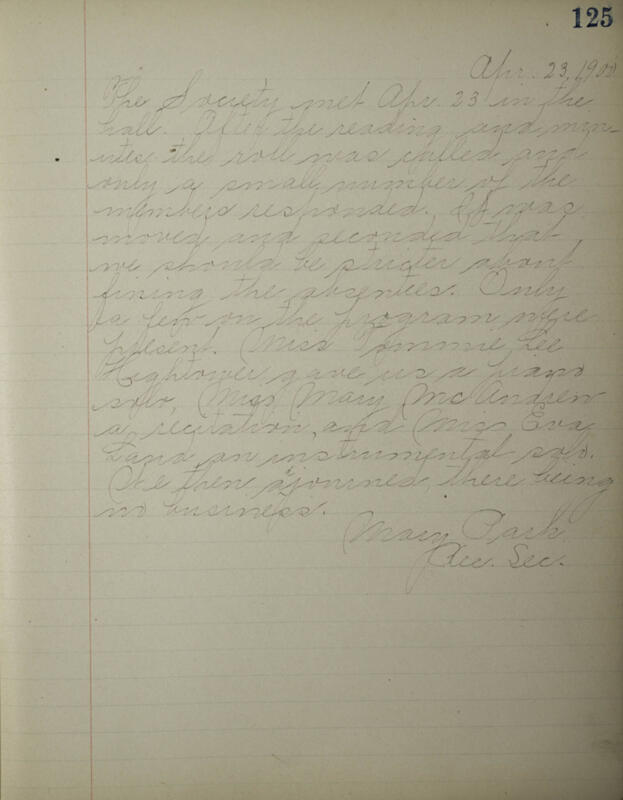 125
Apr. 23, 190
The Society met Apr. 23 in the
hall. After the reading and min-
utes the roll was called and
only a small number of the
members responded. It was
moved and seconded that
we should be stricter about
fining the absentees. Only
a few on the program were
present. Miss Tommie Lee
Hightower gave us a piano
solo, Miss Mary McAndrew
a recitation, and Miss Eva
Land an instrumental solo.
We then ajourned, there being
no business.
Mary Park
Rec. Sec.